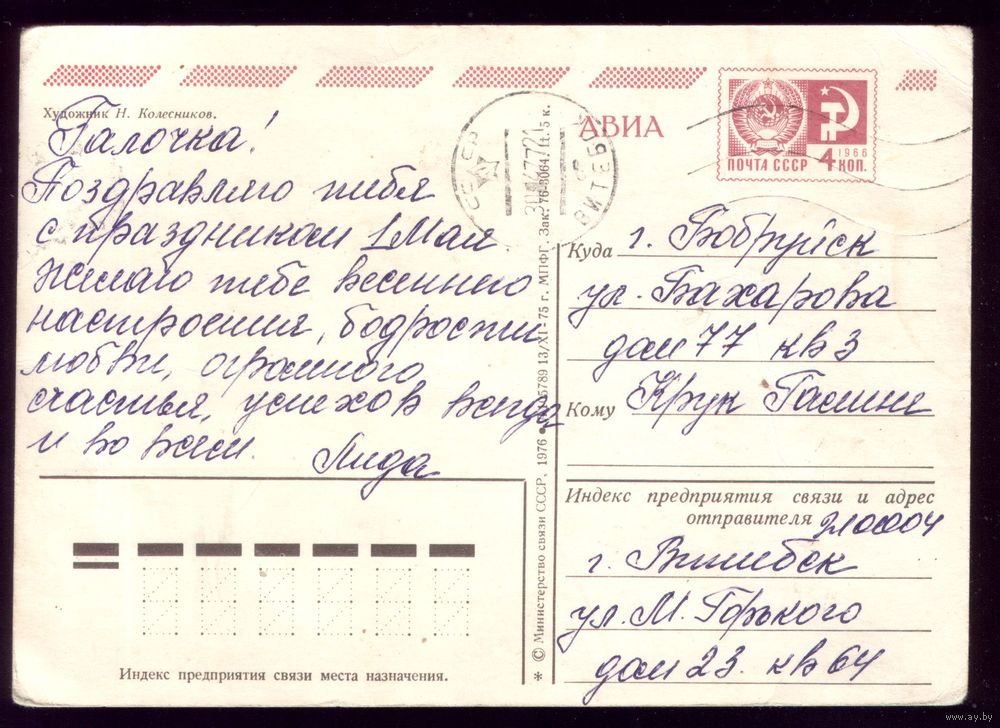 Художник Н. Колесников.
Галочка!
Поздравляю тебя
с праздником 1 Мая
желаю тебе весеннего
настроения, бодрости
любви, огромного
счастья, успехов всегда
и во всем.
Лида
СССР
ВИТЕБСК
АВИА
ПОЧТА СССР
1966
4 КОП.
Куда г. Бобруйск
ул. Бахарова
дом 77 кв 3
Кому Крук Галине
Индекс предприятия связи и адрес
отправителя 210004
г. Витебск
ул. М. Горького
дом 23. кв 64
© Министерство связи СССР, 1976 • 13/XI-75 г. МПФГ. Зак. 76-8064. Ц. 5 к.
Индекс предприятия связи места назначения.
www.ay.by